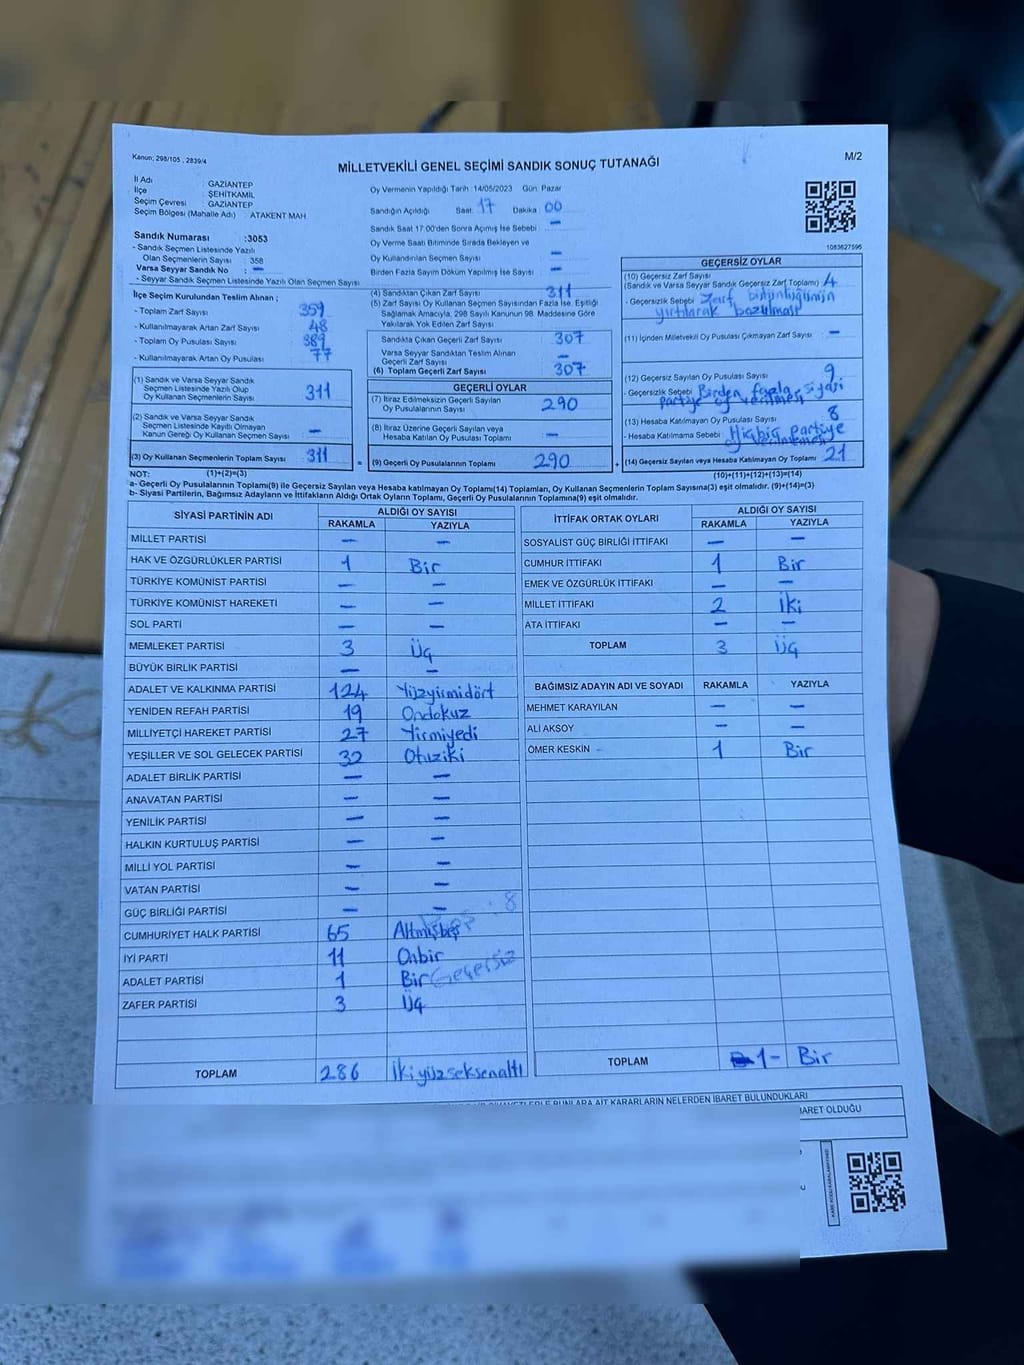 Kanun; 298/105 , 2839/4
MİLLETVEKİLİ GENEL SEÇİMİ SANDIK SONUÇ TUTANAĞI
M/2
İl Adı GAZİANTEP
İlçe ŞEHİTKAMİL
Seçim Çevresi : GAZİANTEP
Seçim Bölgesi (Mahalle Adı) : ATAKENT MAH
Sandık Numarası :3053
- Sandık Seçmen Listesinde Yazılı
Olan Seçmenlerin Sayısı : 358
Varsa Seyyar Sandık No : –
- Seyyar Sandık Seçmen Listesinde Yazılı Olan Seçmen Sayısı
İlçe Seçim Kurulundan Teslim Alınan ;
- Toplam Zarf Sayısı 359
- Kullanılmayarak Artan Zarf Sayısı 48
- Toplam Oy Pusulası Sayısı
- Kullanılmayarak Artan Oy Pusulası 77
(1) Sandık ve Varsa Seyyar Sandık
Seçmen Listesinde Yazılı Olup
Oy Kullanan Seçmenlerin Sayısı 311
(2) Sandık ve Varsa Seyyar Sandık
Seçmen Listesinde Kayıtlı Olmayan
Kanun Gereği Oy Kullanan Seçmen Sayısı –
(3) Oy Kullanan Seçmenlerin Toplam Sayısı 311
Oy Vermenin Yapıldığı Tarih :14/05/2023 Gün: Pazar
Sandığın Açıldığı Saat: 17 Dakika: 00
Sandık Saat 17.00'den Sonra Açılmış İse Sebebi –
Oy Verme Saati Bitiminde Sırada Bekleyen ve
Oy Kullandırılan Seçmen Sayısı –
Birden Fazla Sayım Döküm Yapılmış İse Sayısı –
(4) Sandıktan Çıkan Zarf Sayısı 311
(5) Zarf Sayısı Oy Kullanan Seçmen Sayısından Fazla İse, Eşitliği
Sağlamak Amacıyla, 298 Sayılı Kanunun 98. Maddesine Göre
Yakılarak Yok Edilen Zarf Sayısı
Sandıkta Çıkan Geçerli Zarf Sayısı 307
Varsa Seyyar Sandıktan Teslim Alınan
Geçerli Zarf Sayısı –
(6) Toplam Geçerli Zarf Sayısı 307
GEÇERLİ OYLAR
(7) İtiraz Edilmeksizin Geçerli Sayılan
Oy Pusulalarının Sayısı 290
(8) İtiraz Üzerine Geçerli Sayılan ve
Hesaba Katılan Oy Pusulası Toplamı –
= (9) Geçerli Oy Pusulalarının Toplamı 290
1083627595
GEÇERSİZ OYLAR
(10) Geçersiz Zarf Sayısı
(Sandık ve Varsa Seyyar Sandık Geçersiz Zarf Toplamı) 4
- Geçersizlik Sebebi Zarf bütünlüğünün
yırtılarak bozulması
(11) İçinden Milletvekili Oy Pusulası Çıkmayan Zarf Sayısı –
(12) Geçersiz Sayılan Oy Pusulası Sayısı 9
- Geçersizlik Sebebi Birden fazla siyasi
partiye oy verilmesi
(13) Hesaba Katılmayan Oy Pusulası Sayısı 8
- Hesaba Katılmama Sebebi Hiçbir partiye
verilmemesi
+ (14) Geçersiz Sayılan veya Hesaba Katılmayan Oy Toplamı 21
NOT: (1)+(2)=(3) (10)+(11)+(12)+(13)=(14)
a- Geçerli Oy Pusulalarının Toplamı(9) ile Geçersiz Sayılan veya Hesaba katılmayan Oy Pusulası Toplamı(14) Toplamları, Oy Kullanan Seçmenlerin Toplam Sayısına(3) eşit olmalıdır. (9)+(14)=(3)
b- Siyasi Partilerin, Bağımsız Adayların ve İttifakların Aldığı Ortak Oyların Toplamı, Geçerli Oy Pusulalarının Toplamına(9) eşit olmalıdır.
SİYASİ PARTİNİN ADI ALDIĞI OY SAYISI
RAKAMLA YAZIYLA
MİLLET PARTİSİ – –
HAK VE ÖZGÜRLÜKLER PARTİSİ 1 Bir
TÜRKİYE KOMÜNİST PARTİSİ – –
TÜRKİYE KOMÜNİST HAREKETİ – –
SOL PARTİ – –
MEMLEKET PARTİSİ 3 Üç
BÜYÜK BİRLİK PARTİSİ – –
ADALET VE KALKINMA PARTİSİ 124 Yüzyirmidört
YENİDEN REFAH PARTİSİ 19 Ondokuz
MİLLİYETÇİ HAREKET PARTİSİ 27 Yirmiyedi
YEŞİLLER VE SOL GELECEK PARTİSİ 32 Otuziki
ADALET BİRLİK PARTİSİ – –
ANAVATAN PARTİSİ – –
YENİLİK PARTİSİ – –
HALKIN KURTULUŞ PARTİSİ – –
MİLLİ YOL PARTİSİ – –
VATAN PARTİSİ – –
GÜÇ BİRLİĞİ PARTİSİ – –
: 8
CUMHURİYET HALK PARTİSİ 65 Altmışbeş
İYİ PARTİ 11 Onbir
ADALET PARTİSİ 1 Bir Geçersiz
ZAFER PARTİSİ 3 Üç
TOPLAM 286 İkiyüzseksenaltı
İTTİFAK ORTAK OYLARI ALDIĞI OY SAYISI
RAKAMLA YAZIYLA
SOSYALİST GÜÇ BİRLİĞİ İTTİFAKI – –
CUMHUR İTTİFAKI 1 Bir
EMEK VE ÖZGÜRLÜK İTTİFAKI – –
MİLLET İTTİFAKI 2 İki
ATA İTTİFAKI – –
TOPLAM 3 Üç
BAĞIMSIZ ADAYIN ADI VE SOYADI RAKAMLA YAZIYLA
MEHMET KARAYILAN – –
ALİ AKSOY – –
ÖMER KESKİN 1 Bir
TOPLAM 1- Bir
BUNLARA AİT KARARLARIN NELERDEN İBARET BULUNDUKLARI
İBARET OLDUĞU